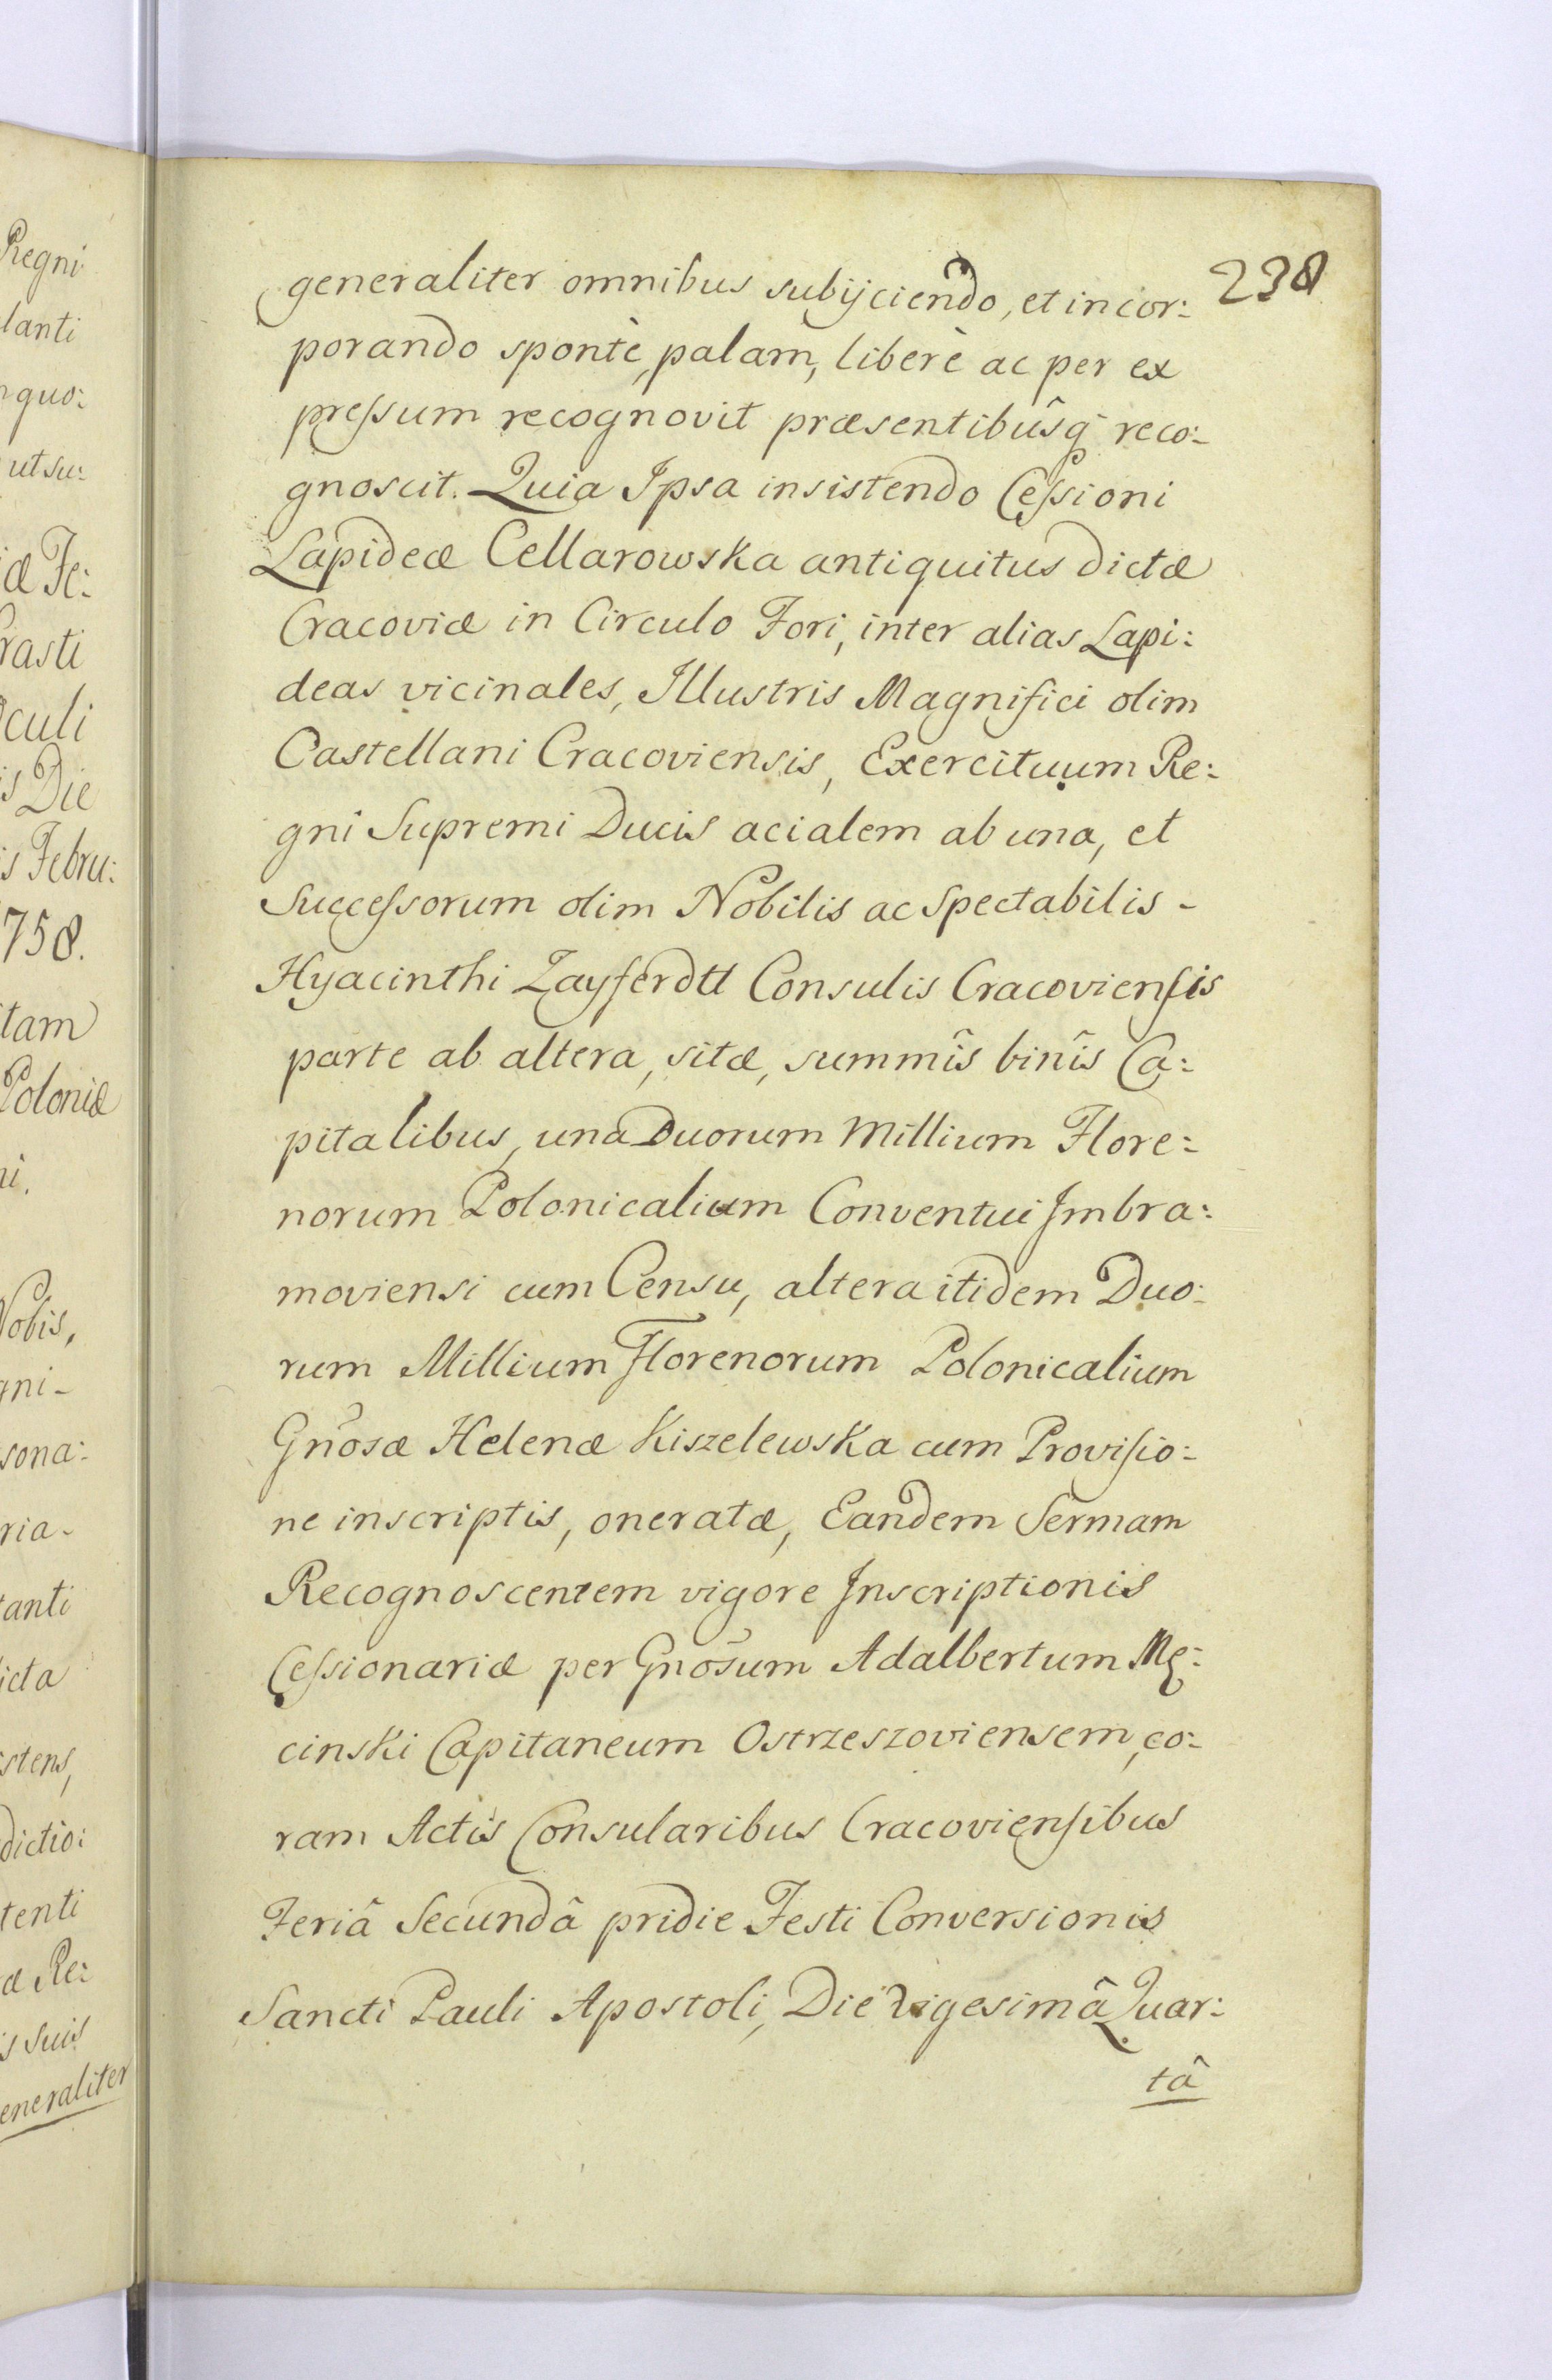 Regni
lanti
quo:
ut su:
æ Fe:
rasti
culi
is Die
is Febru:
758.
tam
Poloniæ
ni.
Nobis,
gni-
sona:
ria-
tanti
icta
istens,
dictio:
tenti
æ Re:
is suis
eneraliter
238
generaliter omnibus subijciendo, et incor:
porando spontè, palam, liberè ac per ex
preſsum recognovit præsentibûsq́ reco:
gnoscit. Quia Ipsa insistendo Ceſsioni
Lapideæ Cellarowska antiquitus dictæ
Cracoviæ in Circulo Fori, inter alias Lapi:
deas vicinales, Illustris Magnifici olim
Castellani Cracoviensis, Exercituum Re:
gni Supremi Ducis acialem ab una, et
Succeſsorum olim Nobilis ac Spectabilis -
Hyacinthi Zayferdtt Consulis Cracovienſis
parte ab altera, sitæ, summîs binîs Ca:
pitalibus, una Duorum Millium Flore:
norum Polonicalium Conventui Imbra:
moviensi cum Censu, altera itidem Duo:
rum Millium Florenorum Polonicalium
Gn̄osæ Helenæ Kiszelewska cum Proviſio:
ne inscriptis, oneratæ, Eandem Sermam
Recognoscentem vigore Inscriptionis
Ceſsionariæ per Gn̄osum Adalbertum Mę:
cinski Capitaneum Ostrzeszoviensem, co:
ram Actis Consularibus Cracovienſibus
Feriâ Secundâ pridie Festi Conversionis
Sancti Pauli Apostoli, Die Vigesimâ Quar:
tâ